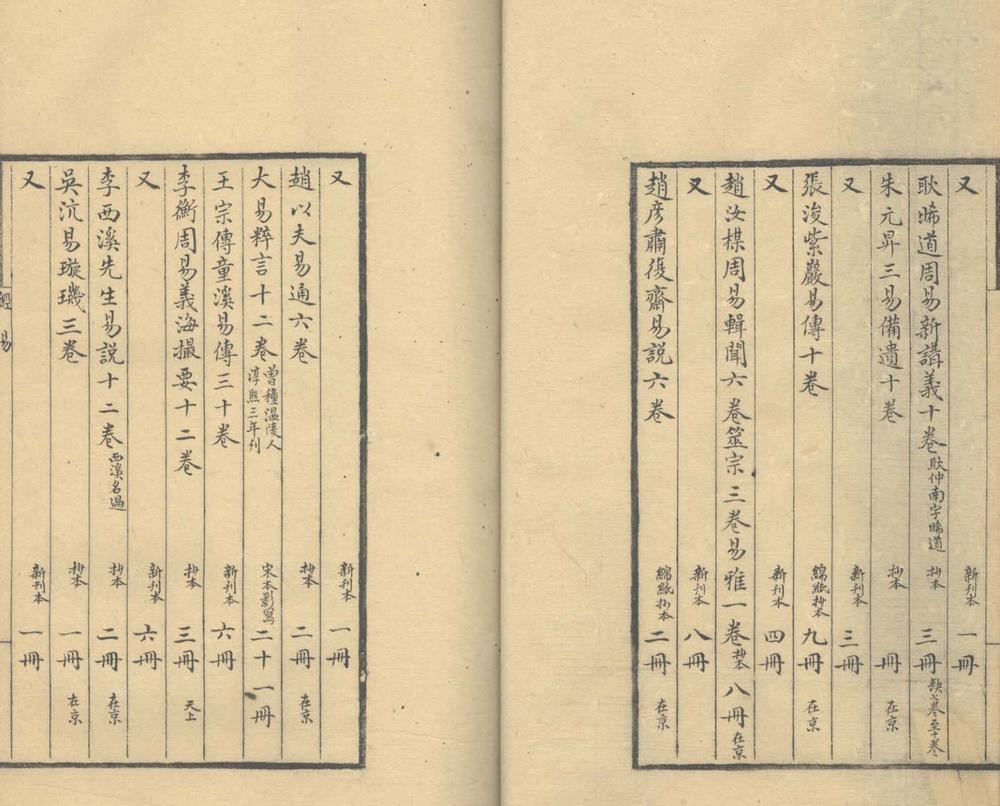 又 新刊本 一冊
耿晞道周易新講義十卷 耿仲南字晞道 抄本 三冊 缺七卷至十卷
朱元昇三易備遺十卷 抄本 冊 在京
又 新刊本 三冊
張浚紫巖易傳十卷 綿紙抄本 九冊 在京
又 新刊本 四冊
趙汝楳周易輯聞六卷筮宗三卷易雅一卷 抄本 八冊 在京
又 新刊本 八冊
趙彥肅復齋易説六卷 綿紙抄本 二冊 在京
又 新刊本 一冊
趙以夫易通六卷 抄本 二冊 在京
大易粹言十二卷 曾穜温陵人淳熙三年刊 宋本影寫 二十一冊
王宗傳童溪易傳三十卷 新刊本 六冊
李衡周易義海撮要十二卷 抄本 三冊 天上
又 新刊本 六冊
李西溪先生易説十二卷 西溪名過 抄本 二冊 在京
吳沆易璇璣三卷 抄本 一冊 在京
又 新刊本 一冊
經 易